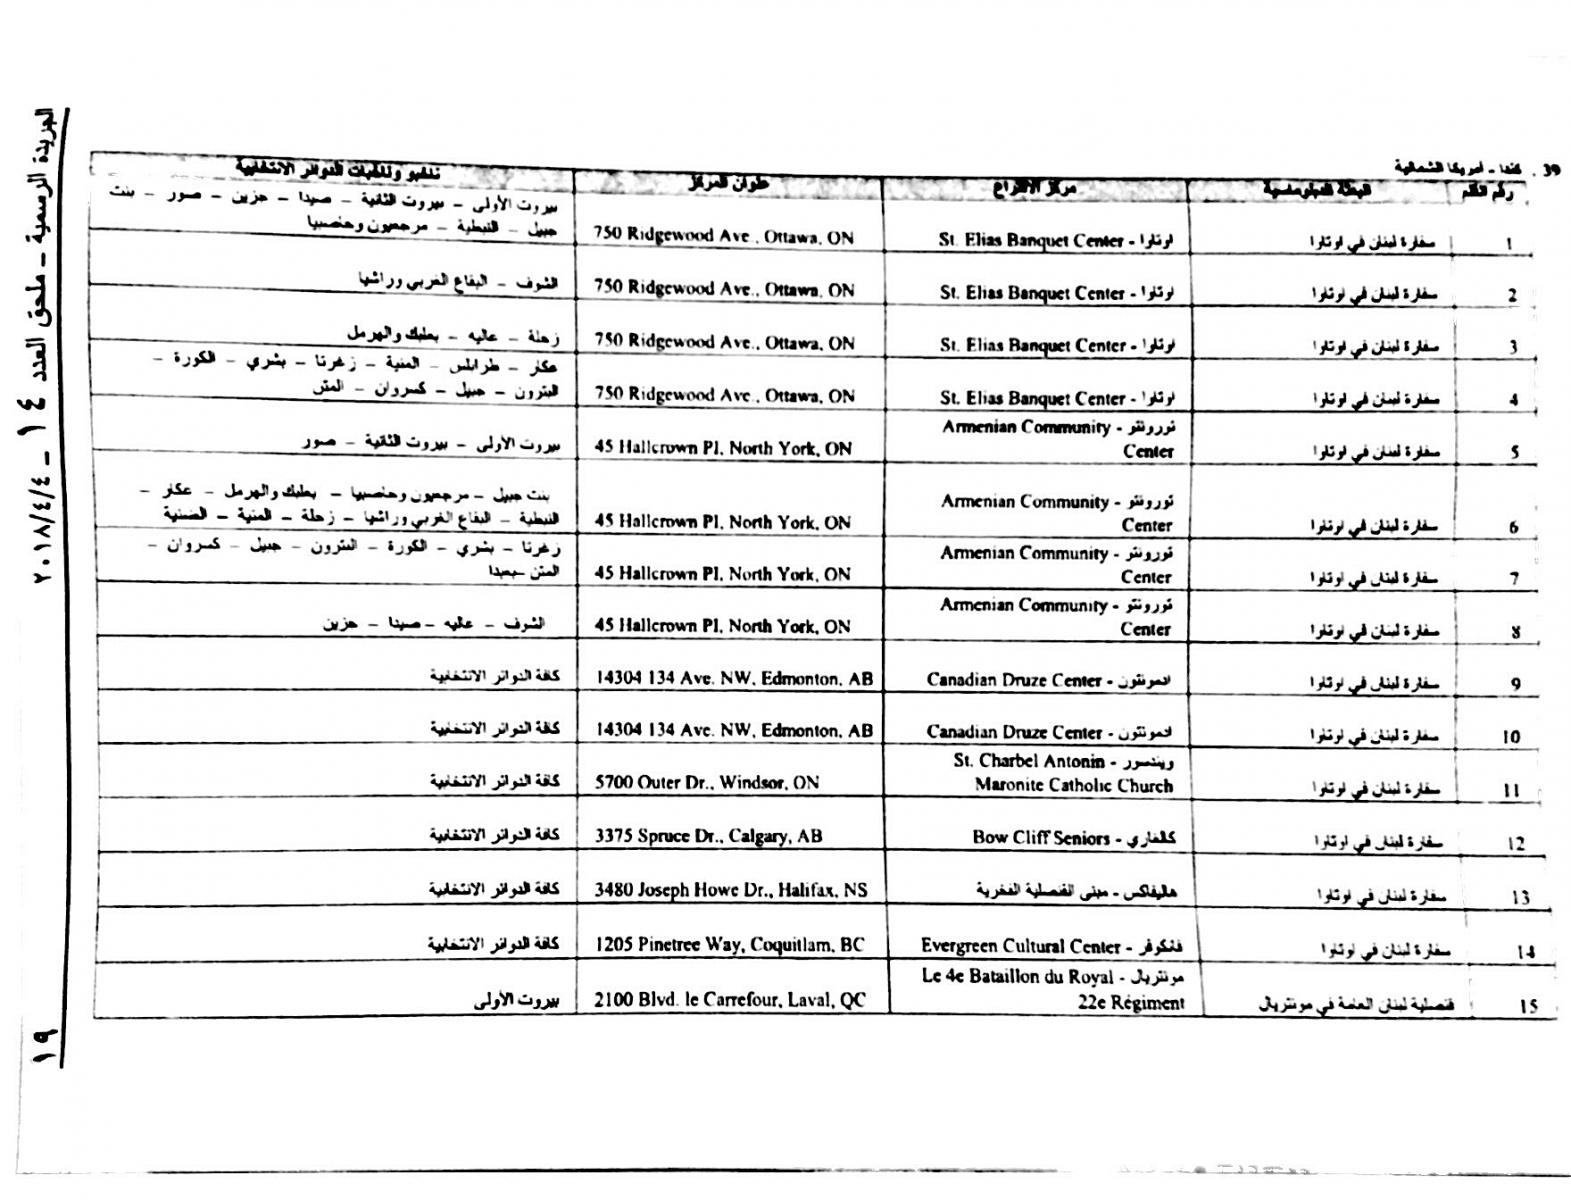 الجريدة الرسمية - ملحق العدد ١٤ - ٢٠١٨/٤/٤
١٩
39 . كندا - أمريكا الشمالية
رقم القلم البعثة الدبلوماسية مركز الاقتراع عنوان المركز ناخبو وناخبات الدوائر الانتخابية
1 سفارة لبنان في اوتاوا اوتاوا - St. Elias Banquet Center 750 Ridgewood Ave., Ottawa, ON بيروت الأولى - بيروت الثانية - صيدا - جزين - صور - بنت
جبيل - النبطية - مرجعيون وحاصبيا
2 سفارة لبنان في اوتاوا اوتاوا - St. Elias Banquet Center 750 Ridgewood Ave., Ottawa, ON الشوف - البقاع الغربي وراشيا
3 سفارة لبنان في اوتاوا اوتاوا - St. Elias Banquet Center 750 Ridgewood Ave., Ottawa, ON زحلة - عاليه - بعلبك والهرمل
4 سفارة لبنان في اوتاوا اوتاوا - St. Elias Banquet Center 750 Ridgewood Ave., Ottawa, ON عكار - طرابلس - المنية - زغرتا - بشري - الكورة -
البترون - جبيل - كسروان - المتن
5 سفارة لبنان في اوتاوا تورونتو - Armenian Community
Center 45 Hallcrown Pl, North York, ON بيروت الأولى - بيروت الثانية - صور
6 سفارة لبنان في اوتاوا تورونتو - Armenian Community
Center 45 Hallcrown Pl, North York, ON بنت جبيل - مرجعيون وحاصبيا - بعلبك والهرمل - عكار -
النبطية - البقاع الغربي وراشيا - زحلة - المنية - الضنية
7 سفارة لبنان في اوتاوا تورونتو - Armenian Community
Center 45 Hallcrown Pl, North York, ON زغرتا - بشري - الكورة - البترون - جبيل - كسروان -
المتن -بعبدا
8 سفارة لبنان في اوتاوا تورونتو - Armenian Community
Center 45 Hallcrown Pl, North York, ON الشوف - عاليه - صيدا - جزين
9 سفارة لبنان في اوتاوا ادمونتون - Canadian Druze Center 14304 134 Ave. NW, Edmonton, AB كافة الدوائر الانتخابية
10 سفارة لبنان في اوتاوا ادمونتون - Canadian Druze Center 14304 134 Ave. NW, Edmonton, AB كافة الدوائر الانتخابية
11 سفارة لبنان في اوتاوا ويندسور - St. Charbel Antonin
Maronite Catholic Church 5700 Outer Dr., Windsor, ON كافة الدوائر الانتخابية
12 سفارة لبنان في اوتاوا كالغاري - Bow Cliff Seniors 3375 Spruce Dr., Calgary, AB كافة الدوائر الانتخابية
13 سفارة لبنان في اوتاوا هاليفاكس - مبنى القنصلية الفخرية 3480 Joseph Howe Dr., Halifax, NS كافة الدوائر الانتخابية
14 سفارة لبنان في اوتاوا فانكوفر - Evergreen Cultural Center 1205 Pinetree Way, Coquitlam, BC كافة الدوائر الانتخابية
15 قنصلية لبنان العامة في مونتريال مونتريال - Le 4e Bataillon du Royal
22e Régiment 2100 Blvd. le Carrefour, Laval, QC بيروت الأولى